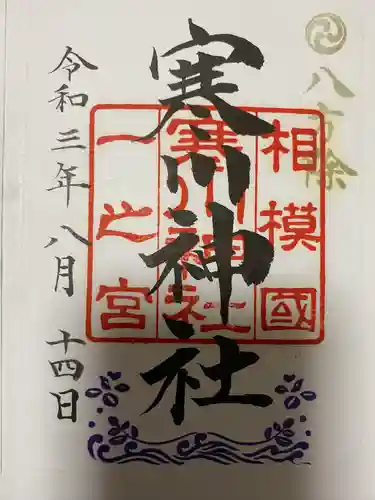 八方除
相模國
寒川神社
一之宮
寒川神社
令和三年八月十四日